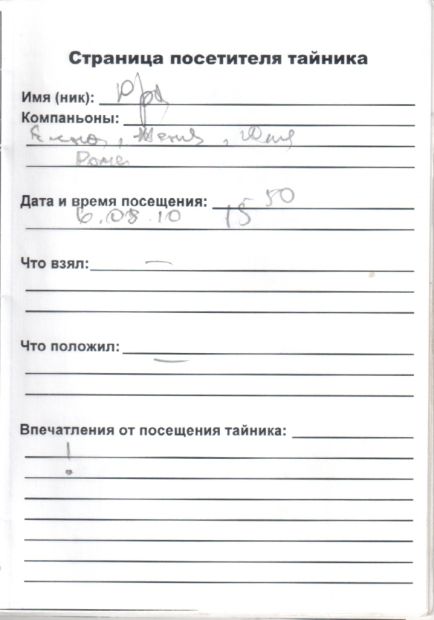 Страница посетителя тайника
Имя (ник):
Компаньоны:
, Женя, Юля
Рома
Дата и время посещения:
6.08.10 15-50
Что взял: —
Что положил:
—
Впечатления от посещения тайника:
!